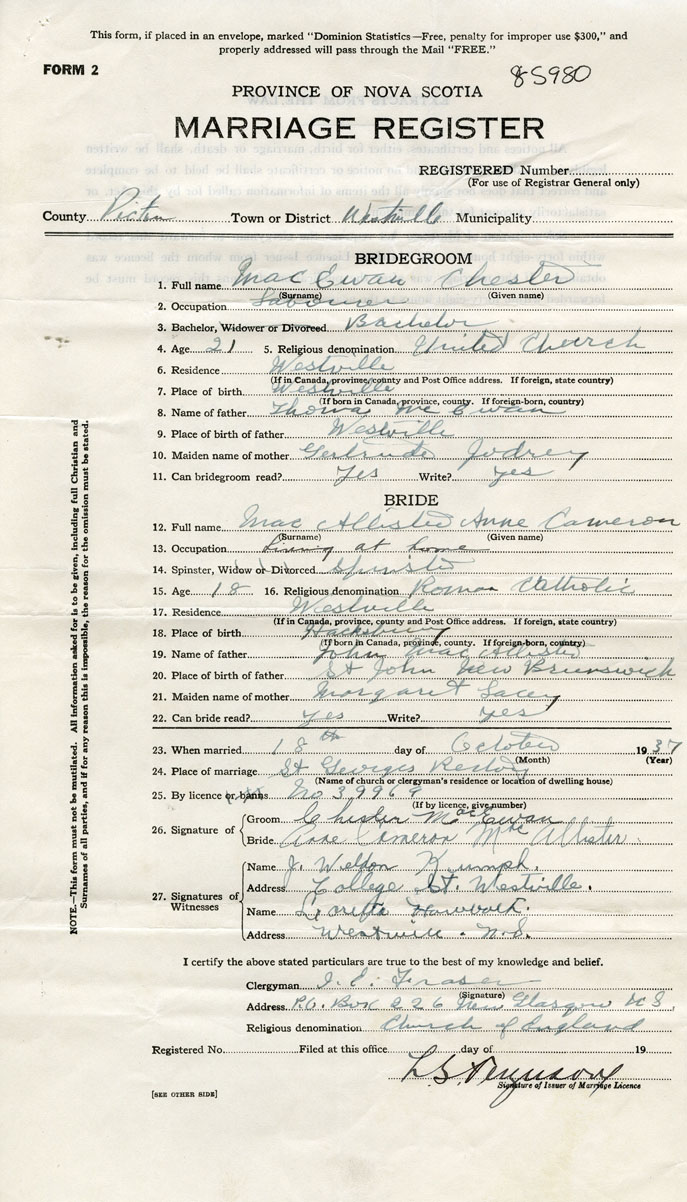 This form, if placed in an envelope, marked "Dominion Statistics—Free, penalty for improper use $300," and
properly addressed will pass through the Mail "FREE."
FORM 2
85980
PROVINCE OF NOVA SCOTIA
MARRIAGE REGISTER
REGISTERED Number
(For use of Registrar General only)
County Pictou Town or District Westville Municipality
BRIDEGROOM
1. Full name Mac Ewan Chester
(Surname) (Given name)
2. Occupation Labourer
3. Bachelor, Widower or Divorced Bachelor
4. Age 21 5. Religious denomination United Church
6. Residence Westville
(If in Canada, province, county and Post Office address. If foreign, state country)
7. Place of birth Westville
(If born in Canada, province, county. If foreign-born, country)
8. Name of father Thomas Mc Ewan
9. Place of birth of father Westville
10. Maiden name of mother Gertrude Jodrey
11. Can bridegroom read? Yes Write? Yes
BRIDE
12. Full name Mac Allister Anne Cameron
(Surname) (Given name)
13. Occupation Living at home
14. Spinster, Widow or Divorced Spinster
15. Age 18 16. Religious denomination Roman Catholic
17. Residence Westville
(If in Canada, province, county and Post Office address. If foreign, state country)
18. Place of birth
(If born in Canada, province, county. If foreign-born, country)
19. Name of father John Mac Allister
20. Place of birth of father St John New Brunswick
21. Maiden name of mother Margaret Lacey
22. Can bride read? Yes Write? Yes
23. When married 18th day of October 1937
(Month) (Year)
24. Place of marriage St Georges Rectory
(Name of church or clergyman's residence or location of dwelling house)
25. By licence or banns No 39969
(If by licence, give number)
26. Signature of Groom Chester MacEwan
Bride Anne Cameron Mac Allister
27. Signatures of Witnesses
Name J. Weldon
Address College St. Westville.
Name
Address Westville. N.S.
I certify the above stated particulars are true to the best of my knowledge and belief.
Clergyman J. E. Fraser
(Signature)
Address P.O. Box 226 New Glasgow N S.
Religious denomination Church of England
Registered No. Filed at this office day of 19
Signature of Issuer of Marriage Licence
[SEE OTHER SIDE]
NOTE.—This form must not be mutilated. All information asked for is to be given, including full Christian and
Surnames of all parties, and if for any reason this is impossible, the reason for the omission must be stated.